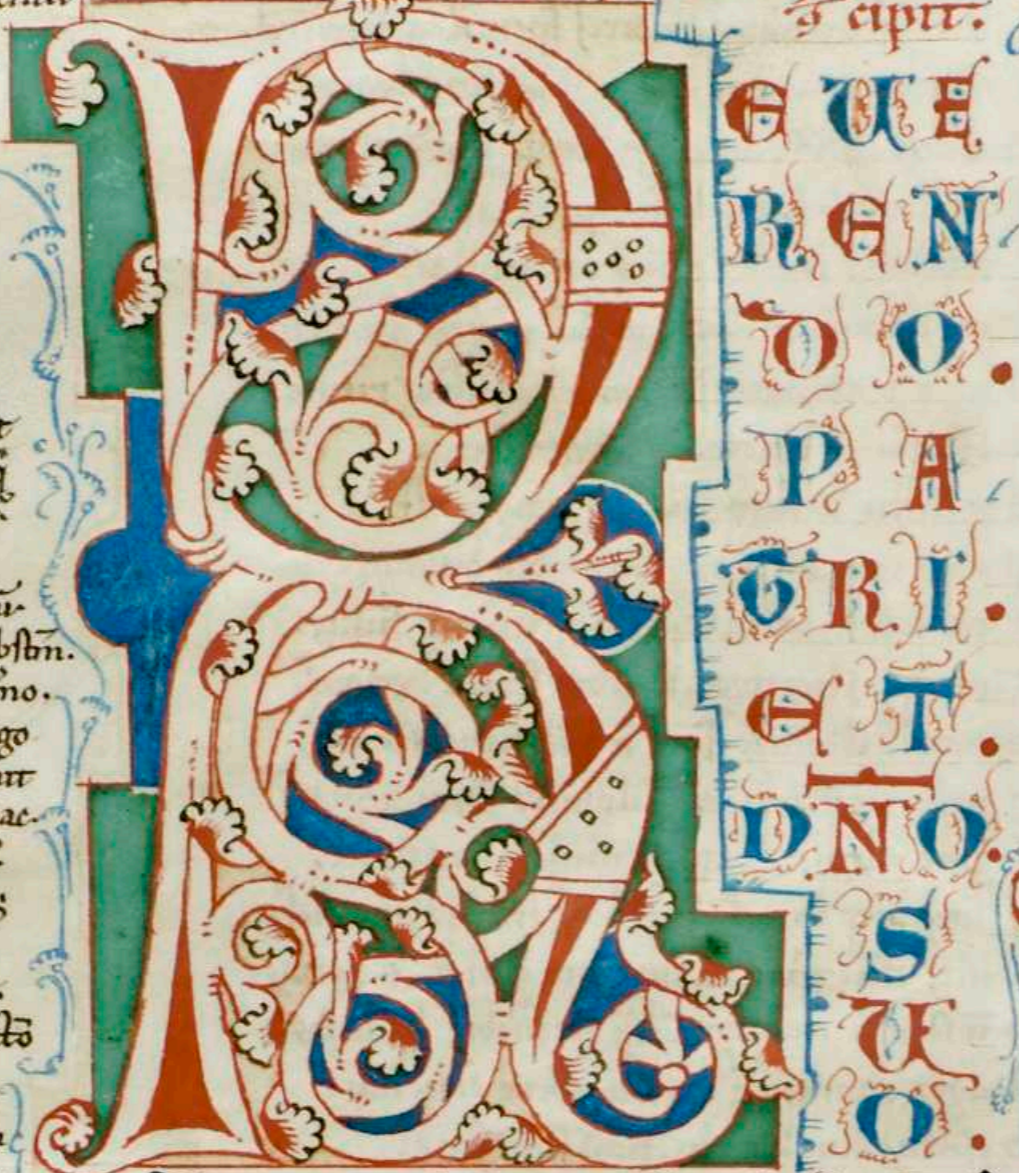 cipit.
R
EUE
REN
DO.
PA
TRI.
ET.
DN̄O.
SU
O.
no.
go
ac.